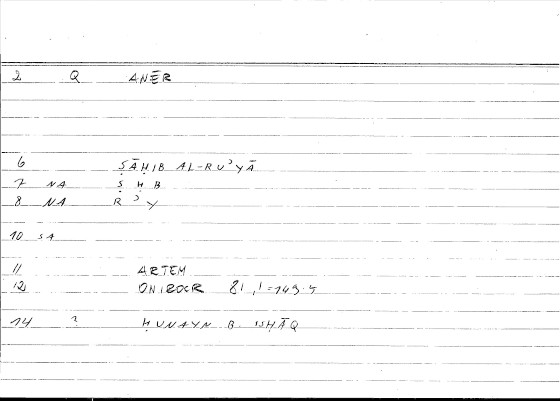 2 Q ANĒR
6 ṢĀḤIB AL-RUʾYĀ
7 NA Ṣ Ḥ B
8 NA R ʾ Y
10 SA
11 ARTEM
12 ONIROCR 81,1=149.5
14 ? ḤUNAYN B. ISḤĀQ